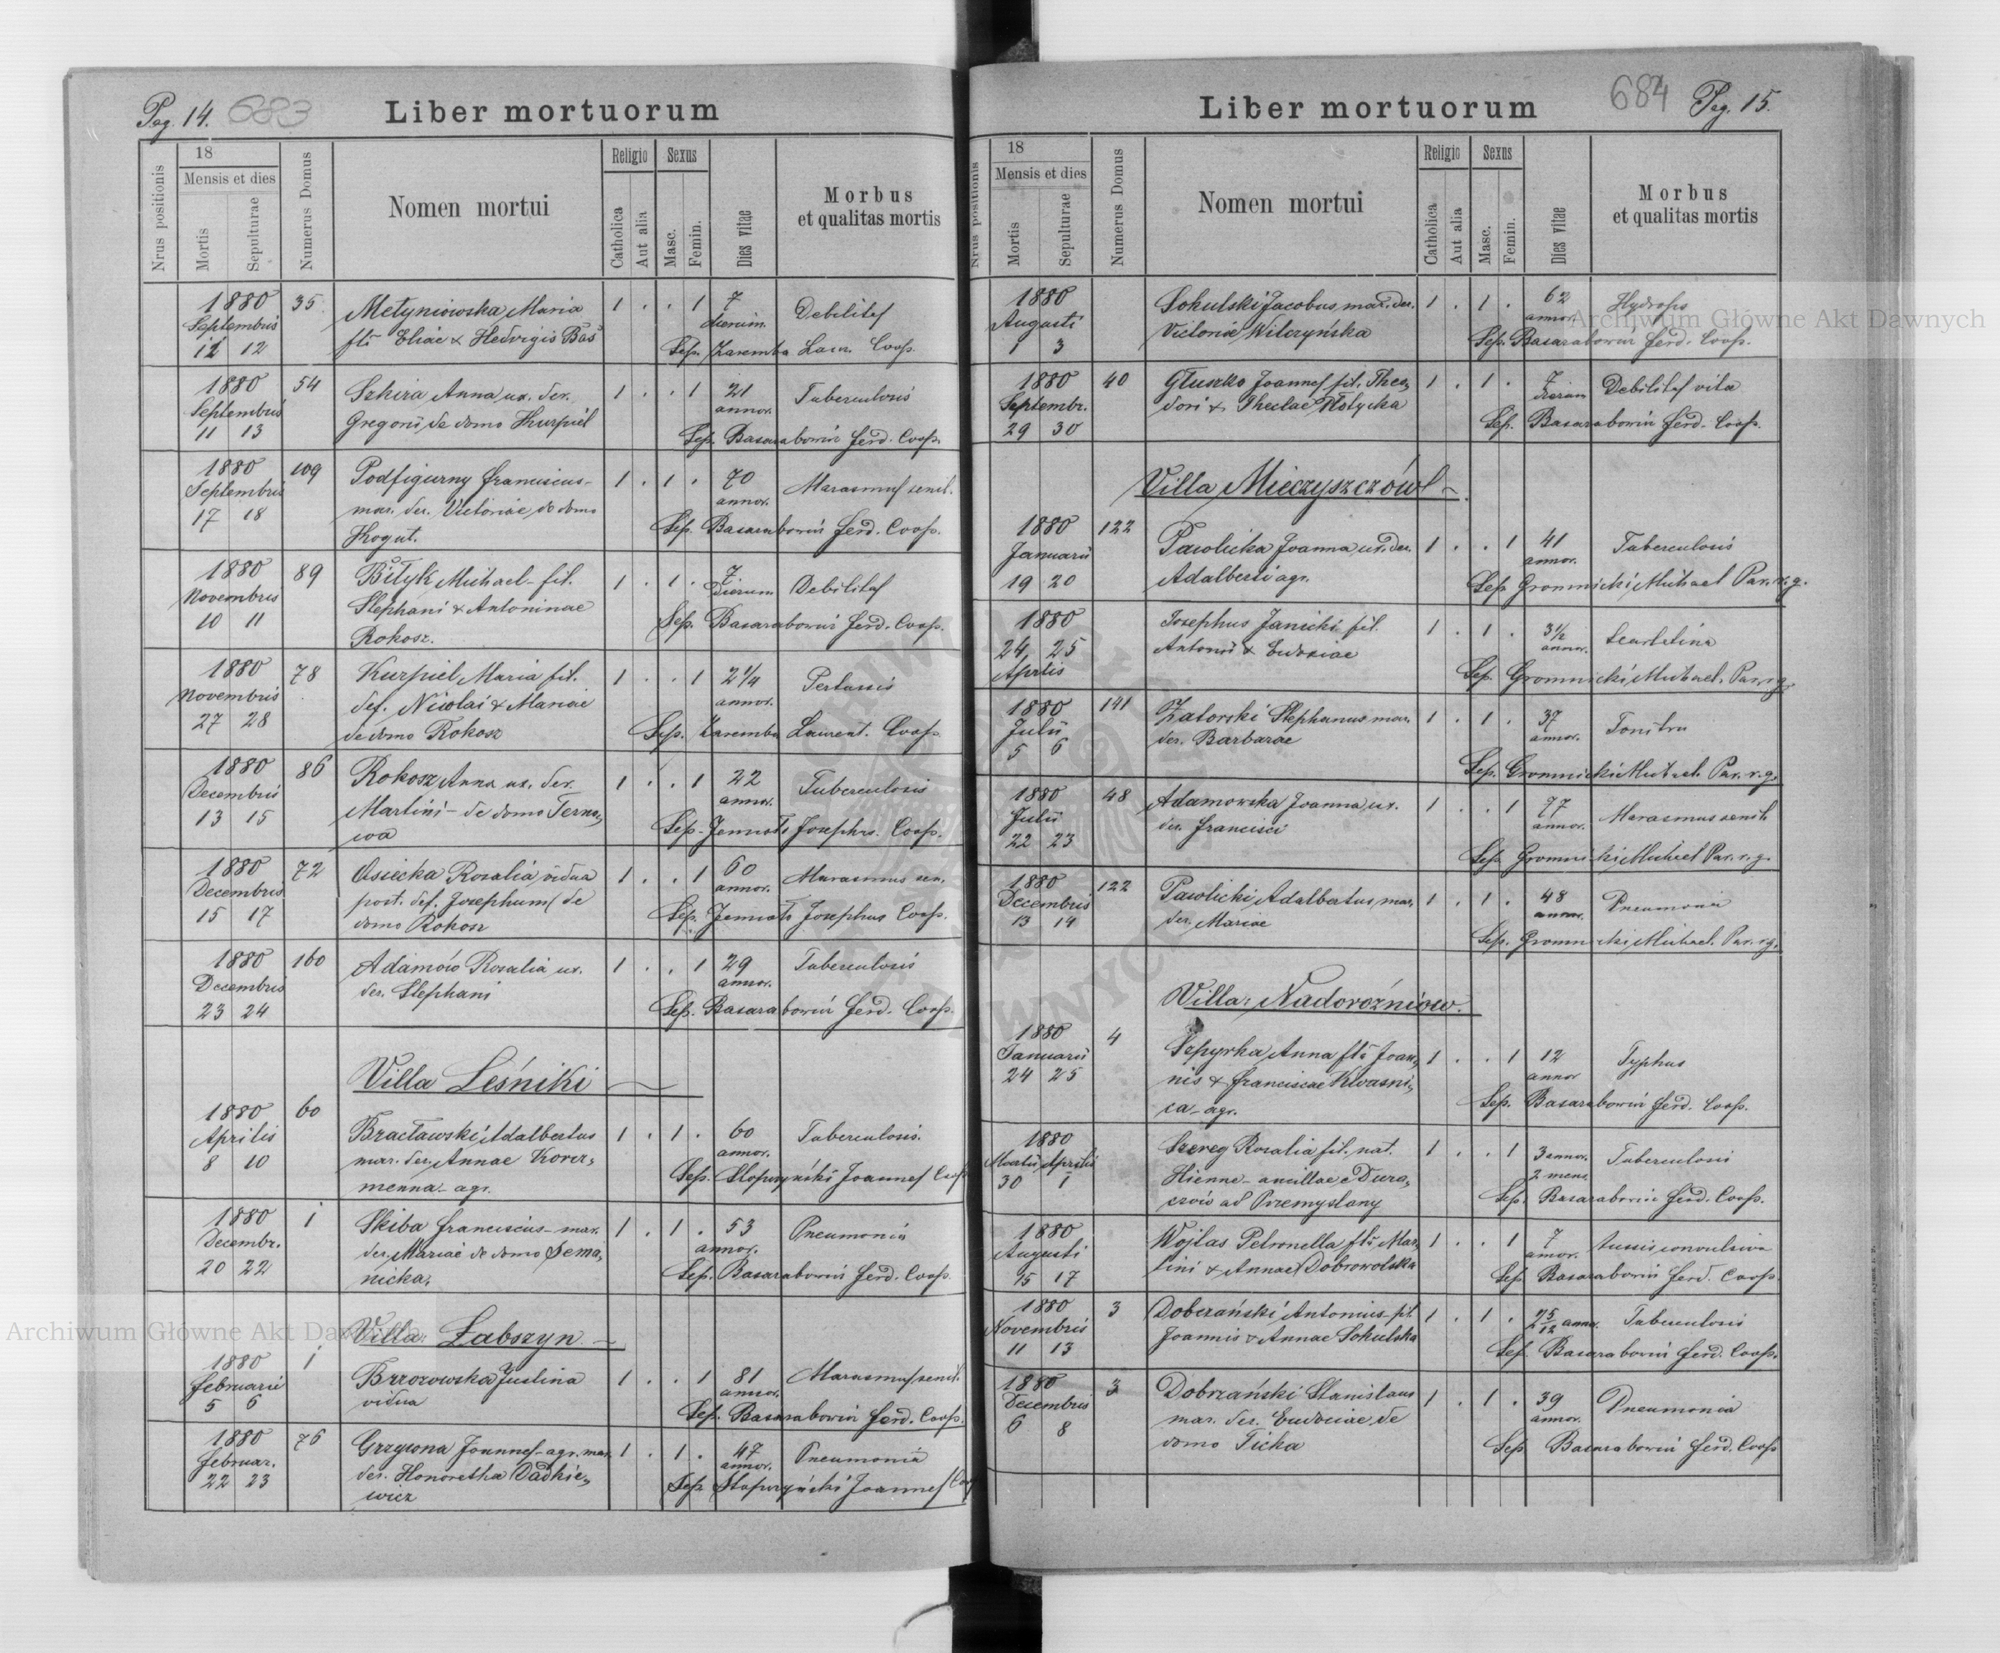 Pag. 14. 683
Liber mortuorum
Nrus positionis
18
Mensis et dies
Mortis
Sepulturae
Numerus Domus
Nomen mortui
Religio
Catholica
Aut alia
Sexus
Masc.
Femin.
Dies vitae
Morbus
et qualitas mortis
1880 35 Metyniowska Maria 1 . . 1 7 Debilitas
Septembris dierum
12 12 Eliae & Hedvigis Baś Sep. Zaremba Laur. Coop.
1880 54 Szkira Anna ux. der. 1 . . 1 21 Tuberculosis
Septembris annor.
11 13 Gregorii de domo Kurpiel Sep. Basarabowicz Ferd. Coop.
1880 109 Podfigurny Franciscus 1 . 1 . 70 Marasmus senil.
Septembris mar. der. Victoriae de domo annor.
17 18 Kogut. Sep. Basarabowicz Ferd. Coop.
1880 89 Biłyk Michael fil. 1 . 1 . 7 Debilitas
Novembris Stephani & Antoninae dierum
10 11 Rokosz. Sep. Basarabowicz Ferd. Coop.
1880 78 Kurpiel Maria fil. 1 . . 1 2 1/4 Pertussis
Novembris def. Nicolai & Mariae annor.
27 28 de domo Rokosz Sep. Zaremba Laurent. Coop.
1880 86 Rokosz Anna ux. der. 1 . . 1 22 Tuberculosis
Decembris Martini de domo Terno- annor.
13 15 wa Sep. Josephus Coop.
1880 72 Osiecka Rosalia vidua 1 . . 1 60 Marasmus sen.
Decembris post. def. Josephum de annor.
15 17 domo Rokosz Sep. Josephus Coop.
1880 160 Adamów Rosalia ux. 1 . . 1 29 Tuberculosis
Decembris der. Stephani annor.
23 24 Sep. Basarabowicz Ferd. Coop.
Villa Leśniki
1880 60 Bracławski Adalbertus 1 . 1 . 60 Tuberculosis.
Aprilis mar. der. Annae annor.
8 10 menna agr. Sep. Słopczyński Joannes
1880 1 Skiba Franciscus mar. 1 . 1 . 53 Pneumonia
Decembr. der. Mariae de domo Sema- annor.
20 22 nicka. Sep. Basarabowicz Ferd. Coop.
Villa Łabszyn
1880 1 Brzozowska Justina 1 . . 1 81 Marasmus senil.
Februarii vidua annor.
5 6 Sep. Basarabowicz Ferd. Coop.
1880 76 Grzywna Joannes agr. mar. 1 . 1 . 47 Pneumonia
Februar. der. Honoretha Dadkie- annor.
22 23 wicz Sep. Słopczyński Joannes
684 Pag. 15.
Liber mortuorum
Nrus positionis
18
Mensis et dies
Mortis
Sepulturae
Numerus Domus
Nomen mortui
Religio
Catholica
Aut alia
Sexus
Masc.
Femin.
Dies vitae
Morbus
et qualitas mortis
1880 Sokulski Jacobus mar. der. 1 . 1 . 62 Hydrops
Augusti Victoria Wilczyńska annor.
1 3 Sep. Basarabowicz Ferd. Coop.
1880 40 Głuszko Joannes fil. Theo- 1 . 1 . 7 Debilitas vita
Septembr. dori & Theclae dierum
29 30 Sep. Basarabowicz Ferd. Coop.
Villa Mieczyszczów
1880 122 Pawlicka Joanna ux. der. 1 . . 1 41 Tuberculosis
Januarii Adalberti agr. annor.
19 20 Sep. Gromnicki Michael Par. r. g.
1880 Josephus Janicki fil. 1 . 1 . 3 1/2 Scarlatina
24 25 Antonii & Eudoxiae annor.
Aprilis Sep. Gromnicki Michael. Par. r. g.
1880 141 Zatorski Stephanus mar. 1 . 1 . 37 Tonitru
Julii der. Barbarae annor.
5 6 Sep. Gromnicki Michael Par. r. g.
1880 48 Adamowska Joanna ux. 1 . . 1 77 Marasmus senil.
Julii der. Francisci annor.
22 23 Sep. Gromnicki Michael Par. r. g.
1880 122 Pawlicki Adalbertus mar. 1 . 1 . 48 Pneumonia
Decembris der. Mariae annor.
13 14 Sep. Gromnicki Michael. Par. r. g.
Villa Nadorożniow.
1880 4 Szpyrka Anna Joan- 1 . . 1 12 Typhus
Januarii nis & Franciscae Kwasni- annor
24 25 ca agr. Sep. Basarabowicz Ferd. Coop.
1880 Szereg Rosalia fil. nat. 1 . . 1 3 annor. Tuberculosis
Martii Aprilis ancillae 2 mens.
30 1 ad Przemyslany Sep. Basarabowicz Ferd. Coop.
1880 Wojtas Petronella Mar- 1 . . 1 7 tussis convulsiva
Augusti tini & Annae Dobrowolska annor.
15 17 Sep. Basarabowicz Ferd. Coop.
1880 3 Dobrzański Antonius fil. 1 . 1 . 2 5/12 annor. Tuberculosis
Novembris Joannis & Annae Sokulska
11 13 Sep. Basarabowicz Ferd. Coop.
1880 3 Dobrzański Stanislaus 1 . 1 . 39 Pneumonia
Decembris mar. der. Eudociae de annor.
6 8 domo Ticka Sep. Basarabowicz Ferd. Coop
Archiwum Główne Akt Dawnych
Archiwum Główne Akt Dawnych